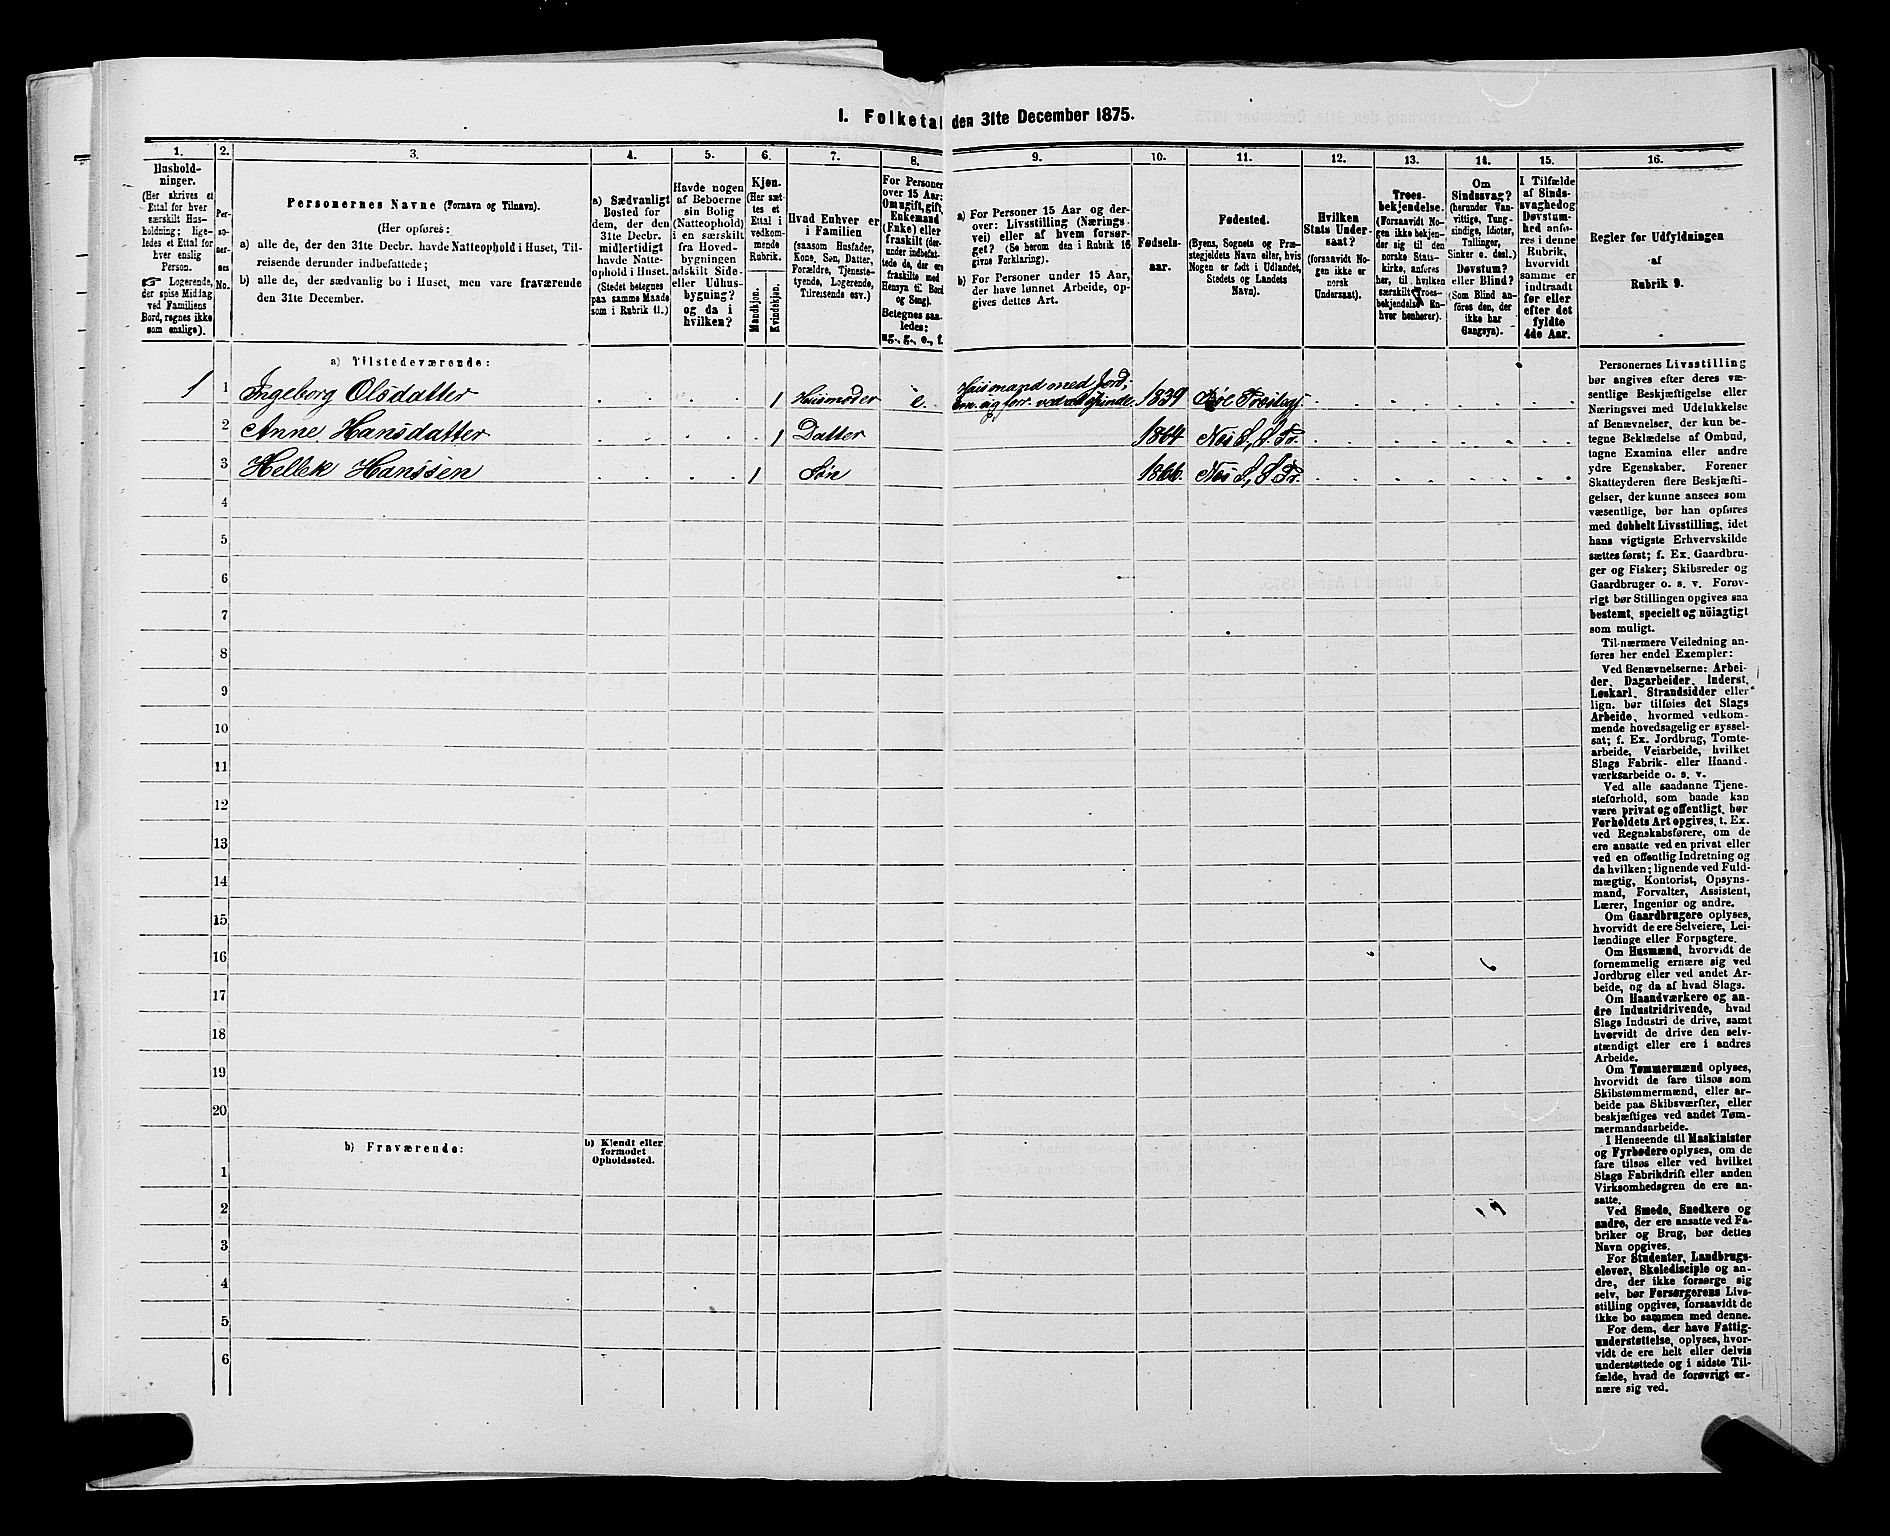 I. Folketal den 31te December 1875.
1.
2.
3.
4.
5.
6.
7.
8.
9.
10.
11.
12.
13.
14.
15.
16.
Hushold-
ninger.
(Her skrives et
Ettal for hver
særskilt Hus-
holdning; lige-
ledes et Ettal for
hver enslig
Person.
☞ Logerende,
der spise Middag
ved Familiens
Bord, regnes ikke
som enslige).
Per-
so-
ner-
nes
No.
Personernes Navne (Fornavn og Tilnavn).
(Her opføres:
a) alle de, der den 31te Decbr. havde Natteophold i Huset, Til-
reisende derunder indbefattede;
b) alle de, der sædvanlig bo i Huset, men vare fraværende
den 31te December.
a) Sædvanligt
Bosted for
dem, der den
31te Decbr.
midlertidigt
havde Natte-
ophold i Huset.
(Stedet betegnes
paa samme Maade
som i Rubrik 11.)
Havde nogen
af Beboerne
sin Bolig
(Natteophold)
i en særskilt
fra Hoved-
bygningen
adskilt Side-
eller Udhus-
bygning?
og da i
hvilken?
Kjøn.
(Her sæt-
tes et
Ettal i
vedkom-
mende
Rubrik.
Mandkjøn.
Kvindekjøn.
Hvad Enhver er
i Familien
(saasom Husfader,
Kone, Søn, Datter,
Forældre, Tjeneste-
tyende, Logerende,
Tilreisende osv.)
For Personer
over 15 Aar:
Om ugift, gift,
Enkemand
(Enke) eller
fraskilt (der-
under indbefat-
tede de, der ere
fraskilte med
Hensyn til Bord
og Seng).
Betegnes saa-
ledes:
ug., g., e., f.
a) For Personer 15 Aar og der-
over: Livsstilling (Nærings-
vei) eller af hvem forsør-
get? (Se herom den i Rubrik 16
givne Forklaring).
b) For Personer under 15 Aar,
der have lønnet Arbeide, op-
gives dettes Art.
Fødsels-
aar.
Fødested.
(Byens, Sognets og Præ-
stegjeldets Navn eller, hvis
Nogen er født i Udlandet,
Stedets og Landets
Navn).
Hvilken
Stats Under-
saat?
(forsaavidt No-
gen ikke er
norsk
Undersaat).
Troes-
bekjendelse.
(Forsaavidt No-
gen ikke bekjen-
der sig til den
norske Stats-
kirke, anføres
her, til hvilken
særskilt Troes-
bekjendelse En-
hver henhører).
Om
Sindssvag?
(herunder Van-
vittige, Tung-
sindige, Idioter,
Tullinger,
Sinker o. desl.)
Døvstum?
eller Blind?
(Som Blind an-
føres den, der
ikke har
Gangsyn).
I Tilfælde
af Sinds-
svaghed og
Døvstum-
hed anfø-
res i denne
Rubrik,
hvorvidt
samme er
indtraadt
før eller
efter det
fyldte
4de Aar.
Regler for Udfyldningen
af
Rubrik 9.
a) Tilstedeværende:
1 1 Ingeborg Olsdatter 1 Husmoder e. Husmand med Jord; 1839
2 Anne Hansdatter 1 Datter 1864 Næs S., S. Pr.
3 Hellek Hanssen 1 Søn 1866. Næs S., S. Pr.
4
5
6
7
8
9
10
11
12
13
14
15
16
17
18
19
20
b) Fraværende:
b) Kjendt eller
formodet
Opholdssted.
1
2
3
4
5
6
Personernes Livsstilling
bør angives efter deres væ-
sentlige Beskjæftigelse eller
Næringsvei med Udelukkelse
af Benævnelser, der kun be-
tegne Beklædelse af Ombud,
tagne Examina eller andre
ydre Egenskaber. Forener
Skatteyderen flere Beskjæfti-
gelser, der kunne ansees som
væsentlige, bør han opføres
med dobbelt Livsstilling, idet
hans vigtigste Erhvervskilde
sættes først; f. Ex. Gaardbru-
ger og Fisker; Skibsreder og
Gaardbruger o. s. v. Forøv-
rigt bør Stillingen opgives saa
bestemt, specielt og nöiagtigt
som muligt.
Til nærmere Veiledning an-
føres her endel Exempler:
Ved Benævnelserne: Arbei-
der, Dagarbeider, Inderst,
Løskarl, Strandsidder eller
lign. bør tilføies det Slags
Arbeide, hvormed vedkom-
mende hovedsagelig er syssel-
sat; f. Ex. Jordbrug, Tomte-
arbeide, Veiarbeide, hvilket
Slags Fabrik- eller Haand-
værksarbeide o. s. v.
Ved alle saadanne Tjene-
steforhold, som baade kan
være privat og offentligt, bør
Forholdets Art opgives, t. Ex.
ved Regnskabsførere, om de
ere ansatte ved en privat eller
ved en offentlig Indretning og
da hvilken; lignende ved Fuld-
mægtig, Kontorist, Opsyns-
mand, Forvalter, Assistent,
Lærer, Ingeniør og andre.
Om Gaardbrugere oplyses,
hvorvidt de ere Selveiere, Lei-
lændinge eller Forpagtere.
Om Husmænd, hvorvidt de
fornemmelig ernære sig ved
Jordbrug eller ved andet Ar-
beide, og da af hvad Slags.
Om Haandværkere og an-
dre Industridrivende, hvad
Slags Industri de drive, samt
hvorvidt de drive den selv-
stændigt eller ere i andres
Arbeide.
Om Tømmermænd oplyses,
hvorvidt de fare tilsøs som
Skibstømmermænd, eller ar-
beide paa Skibsværfter, eller
beskjæftiges ved andet Tøm-
mermandsarbeide.
I Henseende til Maskinister
og Fyrbødere oplyses, om de
fare tilsøs eller ved hvilket
Slags Fabrikdrift eller anden
Virksomhedsgren de ere an-
satte.
Ved Smede, Snedkere og
andre, der ere ansatte ved Fa-
briker og Brug, bør dettes
Navn opgives.
For Studenter, Landbrugs-
elever, Skoledisciple og an-
dre, der ikke forsørge sig
selv, bør Forsørgerens Livs-
stilling opgives, forsaavidt de
ikke bo sammen med denne.
For dem, der have Fattig-
understøttelse, oplyses, hvor-
vidt de ere helt eller delvis
understøttede og i sidste Til-
fælde, hvad de forøvrigt er-
nære sig ved.